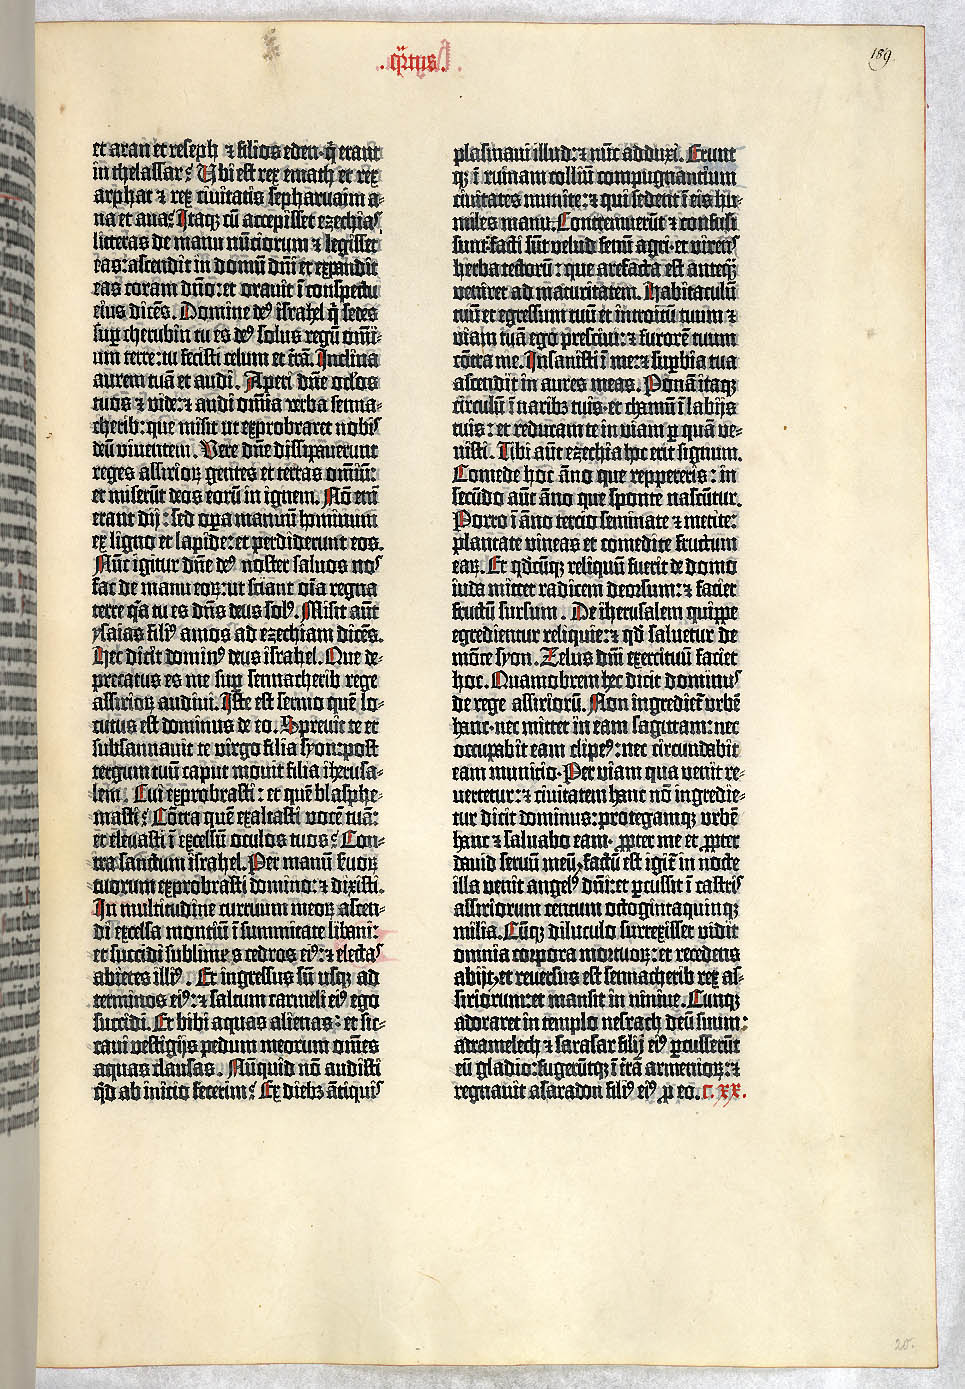 .q̄rtus.
189
et aran et reseph ⁊ filios eden·q̄ erant
in thelassar? Ubi est rex emath et rex
arphat ⁊ rex civitatis sepharuaim a-
na et ana? Itaq; cū accepisset ezechiaꝰ
litteras de manu nūciorum ⁊ legisset
eas: ascendit in domū dn̄i et expandit
eas coram dn̄o: et orauit ī conspectu
eius dicēs. Domine deꝰ israhel q̄ sedes
suꝑ cherubin tu es deꝰ solus regū omī-
um terre: tu fecisti celum et t̄rā. Inclina
aurem tuā et audi. Aperi dn̄e oclos
tuos ⁊ vide: ⁊ audi om̄ia verba senna-
cherib: que misit ut exprobraret nobiꝰ
deū viuentem. Vere dn̄e dissipauerunt
reges assirioꝝ gentes et terras omniū:
et miserūt deos eorū in ignem. Nō eni
erant dij: sed oꝑa manuū hominum
ex ligno et lapide: et perdiderunt eos.
Nūc igitur dn̄e deꝰ noster saluos noꝰ
fac de manu eoꝝ: ut sciant oīa regna
terre q̄a tu es dn̄s deus solꝰ. Misit aūt
ysaias filiꝰ amos ad ezechiam dicēs.
Hec dicit dominꝰ deus israhel. Que de-
precatus es me suꝑ sennacherib rege
assirioꝝ audiui. Iste est sermo quē lo-
cutus est dominus de eo. Spreuit te et
subsannauit te virgo filia syon: post
tergum tuū caput mouit filia iherusa-
lem. Cui exprobrasti: et quē blasphe-
masti? Cōtra quē exaltasti vocē tuā:
et eleuasti ī excelsū oculos tuos? Con-
tra sanctum israhel. Per manū ẜuoꝝ
tuorum exprobrasti domino: ⁊ dixisti.
In multitudine curruum meoꝝ ascen-
di excelsa montiū ī summitate libani:
et succidi sublimes cedros eiꝰ: ⁊ electaꝰ
abietes illiꝰ. Et ingressus sū usq; ad
terminos eiꝰ: ⁊ saltum carmeli eiꝰ ego
succidi. Et bibi aquas alienas: et sic-
caui vestigijs pedum meorum om̄es
aquas clausas. Nūquid nō audisti
qd̄ ab inicio fecerim? Ex diebꝫ ātiquiꝰ
plasmaui illud: ⁊ nūc adduxi. Erunt
q; ī ruinam colliū compugnancium
ciuitates munite: ⁊ qui sedent ī eis hu-
miles manu. Contremuerūt ⁊ confusi
sunt: facti sūt velud fenū agri·et virenꝰ
herba tectorū: que arefacta est anteq̄
veniret ad maturitatem. Habitaculū
tuū et egressum tuū et introitū tuum ⁊
viam tuā ego presciui: ⁊ furorē tuum
cōtra me. Insanisti ī me: ⁊ suꝑbia tua
ascendit in aures meas. Ponā itaq;
circulū ī naribꝫ tuis·et chamū ī labijs
tuis: et reducam te in viam ꝑ quā ve-
nisti. Tibi aūt ezechia hoc erit signum.
Comede hoc āno que reppereris: in
secūdo aūt āno que sponte nascūtur.
Porro ī āno tercio seminate ⁊ metite:
plantate vineas et comedite fructum
eaꝝ. Et qdcūq; reliquū fuerit de domo
iuda mittet radicem deorsum: ⁊ faciet
fructū sursum. De iherusalem quippe
egredientur reliquie: ⁊ qd̄ saluetur de
mōte syon. Zelus dn̄i exercituū faciet
hoc. Quamobrem hec dicit dominuꝰ
de rege assiriorū. Non ingrediet᷑ urbē
hanc·nec mittet in eam sagittam: nec
occupabit eam clipeꝰ: nec circundabit
eam municio. Per viam qua venit re-
uertetur: ⁊ ciuitatem hanc nō ingredie-
tur dicit dominus: protegamq; urbē
hanc ⁊ saluabo eam· ꝓpter me et ꝓpter
dauid seruū meū. factū est igit᷑ in nocte
illa venit angelꝰ dn̄i: et ꝑcussit ī castriꝰ
assiriorum centum octogintaquinq;
milia. Cūq; diluculo surrexisset vidit
omnia corpora mortuoꝝ: et recedens
abijt, et reuersus est sennacherib rex as-
siriorum: et mansit in niniue. Cunq;
adoraret in templo nesrach deū suum:
adramelech ⁊ sarasar filij eiꝰ ꝑcusserūt
eū gladio: fugerūtq; ī t̄rā armenioꝝ: ⁊
regnauit asaradon filiꝰ eiꝰ ꝓ eo. C. XX.
20.